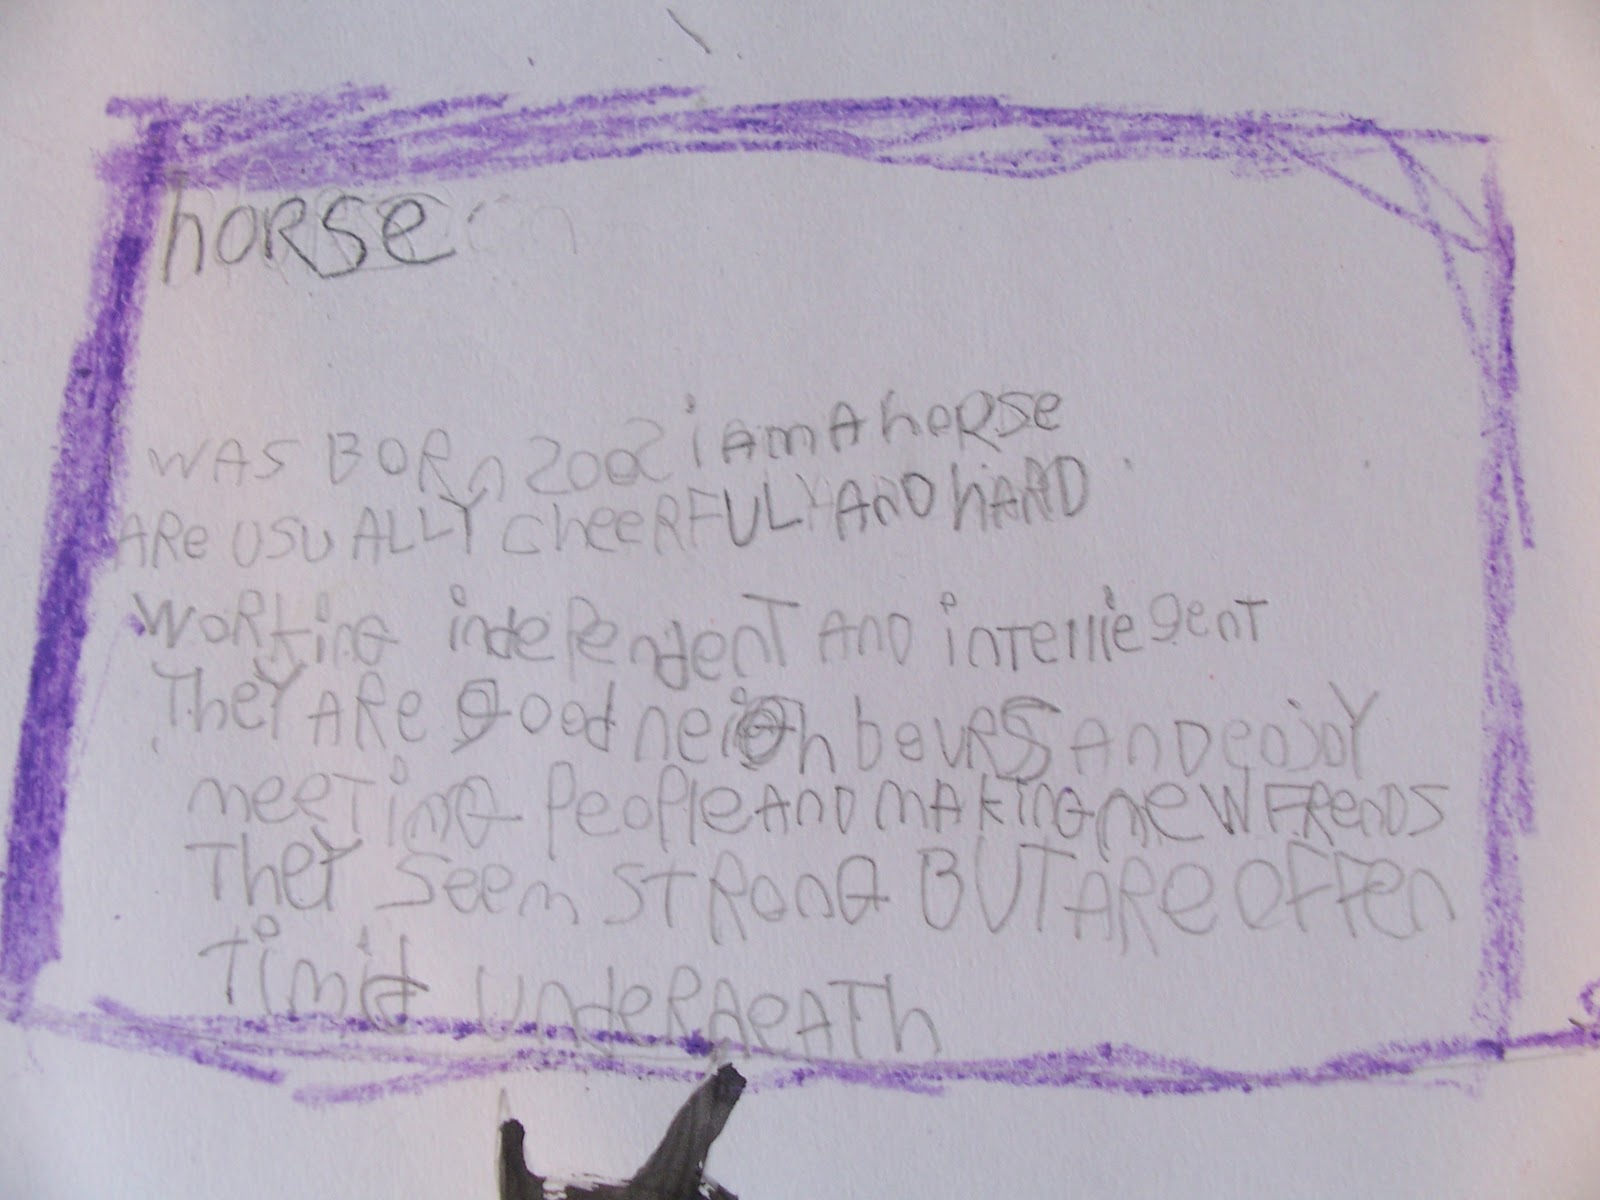 horse
WAS BORn 2002 i AmA horse
ARe USUALLY cheeRFULY AnD hARD
WORking independent AnD inTelliegenT
TheY ARe good neighbouRS AnD enjoY
meeTing PeoPle AnD mAKing new FRenDS
TheY Seem STRong BUT ARe oFFen
Timid UndeRneATh